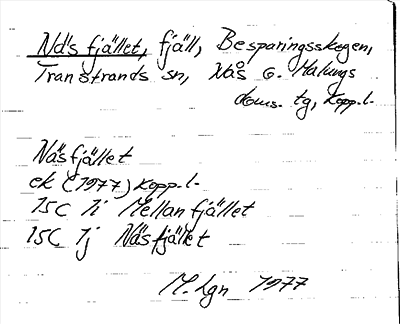 Näs fjället, fjäll, Besparingsskogen,
Transtrands sn, Nås o. Malungs
doms. tg, Kopp.l.
Näsfjället
ek (1977) Kopp.l.
15C 7i Mellanfjället
15C 7j Näsfjället
M. Lgn 1977